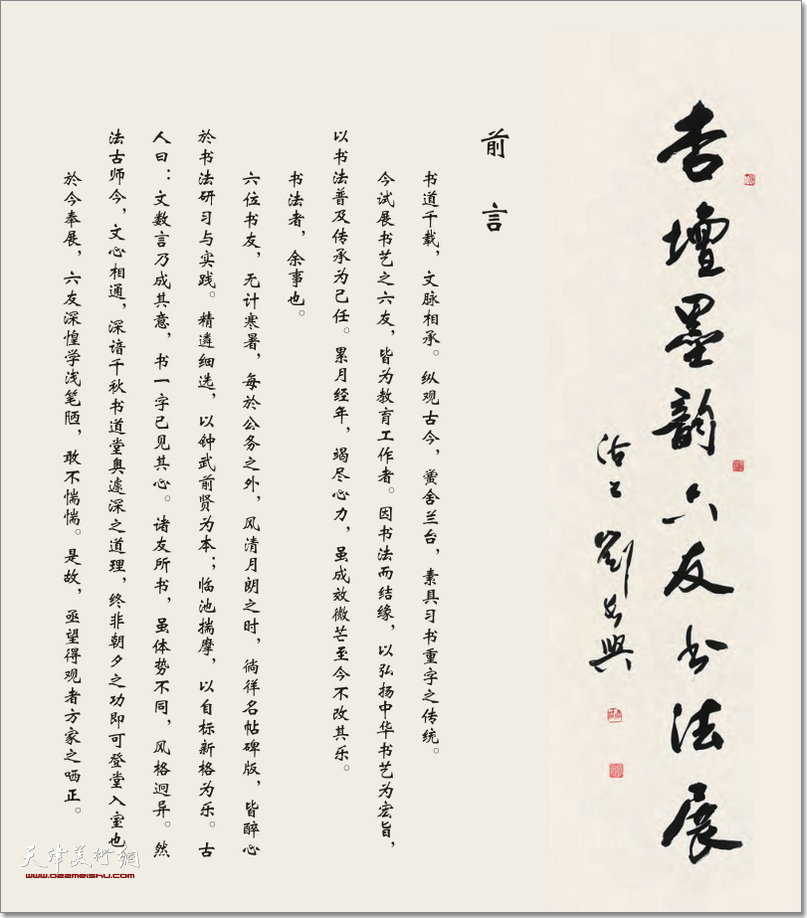 杏壇墨韵六友书法展
沽上
前言
书道千载，文脉相承。纵观古今，黉舍兰台，素具习书重字之传统。
今试展书艺之六友，皆为教育工作者。因书法而结缘，以弘扬中华书艺为宏旨，
以书法普及传承为己任。累月经年，竭尽心力，虽成效微芒至今不改其乐。
书法者，余事也。
六位书友，无计寒暑，每於公务之外，风清月朗之时，徜徉名帖碑版，皆醉心
於书法研习与实践。精遴细选，以钟武前贤为本；临池揣摩，以自标新格为乐。古
人曰：文数言乃成其意，书一字已见其心。诸友所书，虽体势不同，风格迥异。然
法古师今，文心相通，深谙千秋书道堂奥邃深之道理，终非朝夕之功即可登堂入室也
於今奉展，六友深惶学浅笔陋，敢不惴惴。是故，亟望得观者方家之哂正。
天津美術網
www.022meishu.com